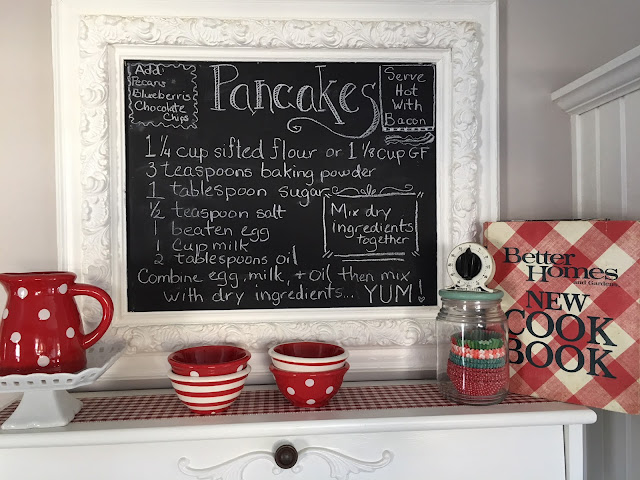 Add:
Pecans
Blueberris
Chocolate
Chips
Pancakes
Serve
Hot
With
Bacon
1 1/4 cup sifted flour or 1 1/8 cup GF
3 teaspoons baking powder
1 tablespoon sugar
1/2 teaspoon salt
1 beaten egg
1 cup milk
2 tablespoons oil
Mix dry
ingredients
together
Combine egg, milk, + oil then mix
with dry ingredients... YUM!
Better
Homes
and Gardens
NEW
COOK
BOOK